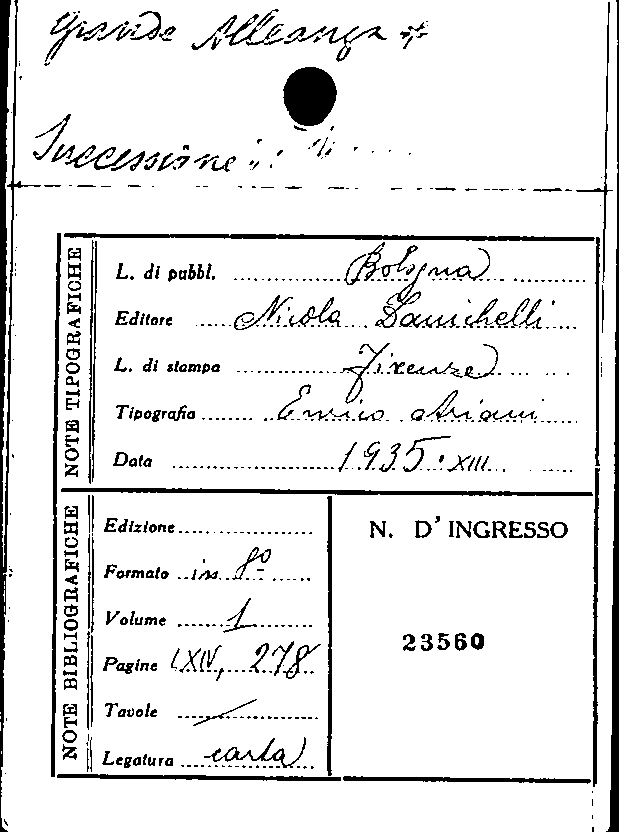 Grande Alleanza
Successione
NOTE TIPOGRAFICHE
L. di pubbl. Bologna
Editore Nicola Zanichelli
L. di stampa Firenze
Tipografia Enrico Ariani
Data 1935 · XIII
NOTE BIBLIOGRAFICHE
Edizione
Formato in 8º
Volume 1
Pagine LXIV, 278
Tavole /
Legatura carta
N. D'INGRESSO
23560